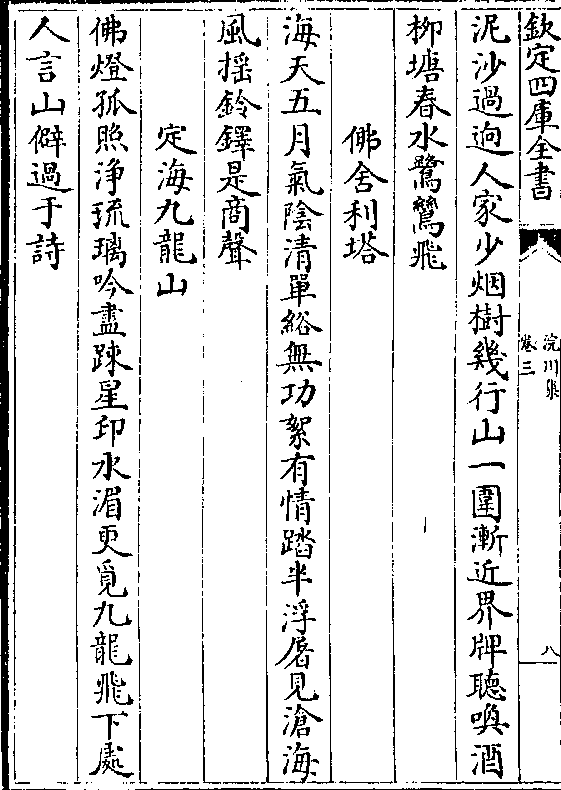 欽定四庫全書
浣川集
卷三
八
泥沙過逈人家少烟樹幾行山一圍漸近界牌聽喚酒
栁塘春水鷺鸞飛
佛舍利塔
海天五月氣陰清單綌無功絮有情踏半浮屠見滄海
風揺鈴鐸是商聲
定海九龍山
佛燈孤照浄琉璃吟盡踈星印水湄更覓九龍飛下處
人言山僻過于詩